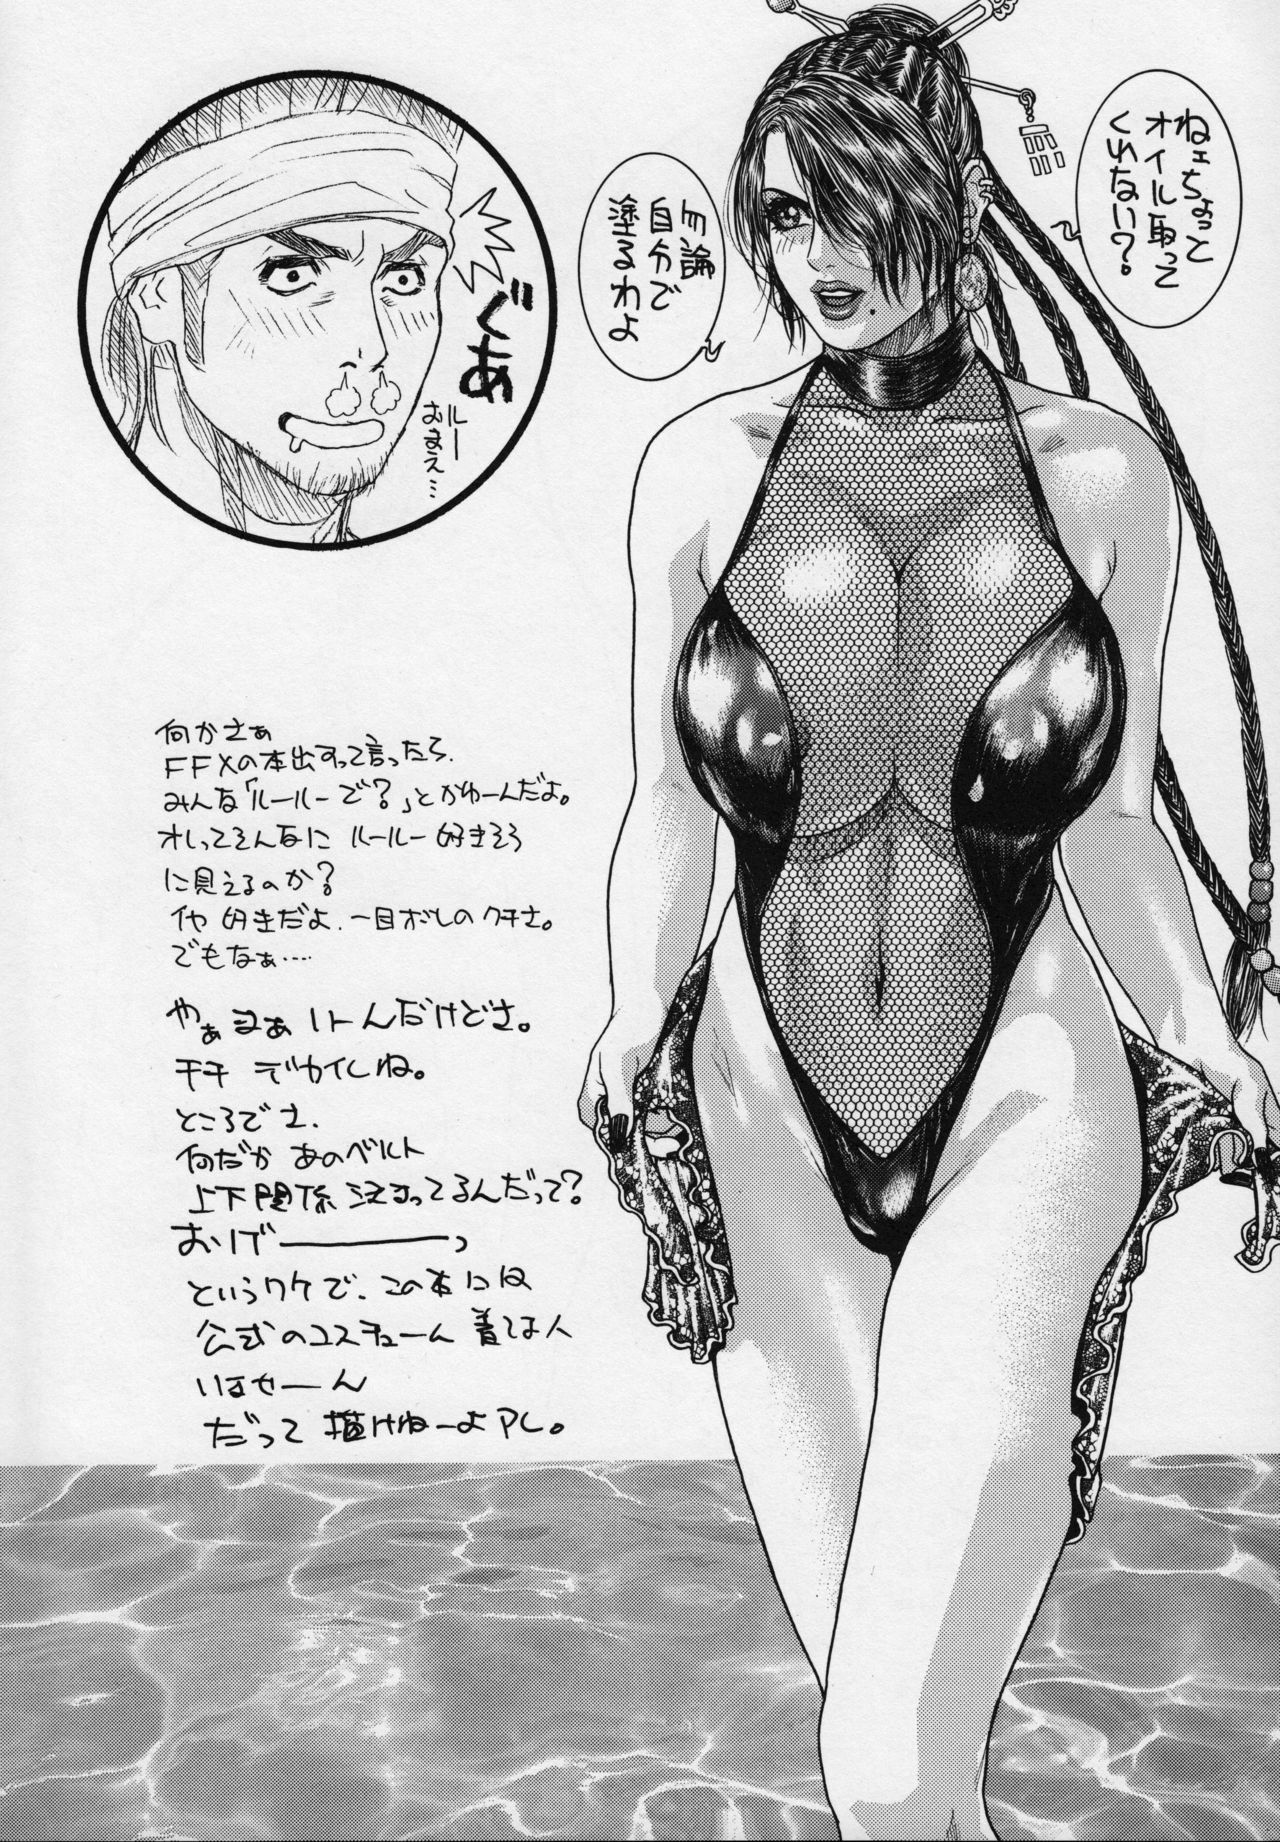 ねェちょっと
オイル取って
くれない?
勿論
自分で
塗るわよ
ぐあ
ルー
おまえ…
何かさぁ
FFXの本出すって言ったら、
みんな「ルールーで?」とかゆーんだよ。
オレってそんなに ルールー好きそう
に見えるのか?
イヤ 好きだよ、一目ボレのクチさ。
でもなぁ……
やぁまぁ いーんだけどさ。
チチ デカイしね。
ところでさ、
何だか あのベルト
上下関係 決まってるんだって?
おげーーーっ
というワケで、この本には
公式のコスチューム 着てる人
いませーん
だって 描けねーよアレ。